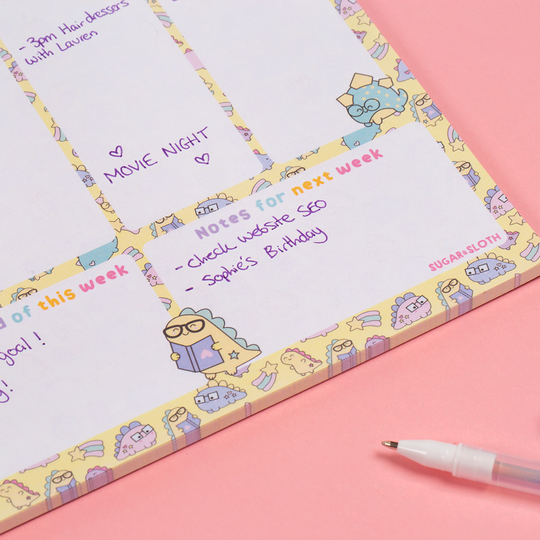 - 3pm Hairdressers
with Lauren
MOVIE NIGHT
Notes for next week
- Check website SEO
- Sophie's Birthday
SUGAR & SLOTH
of this week
goal!